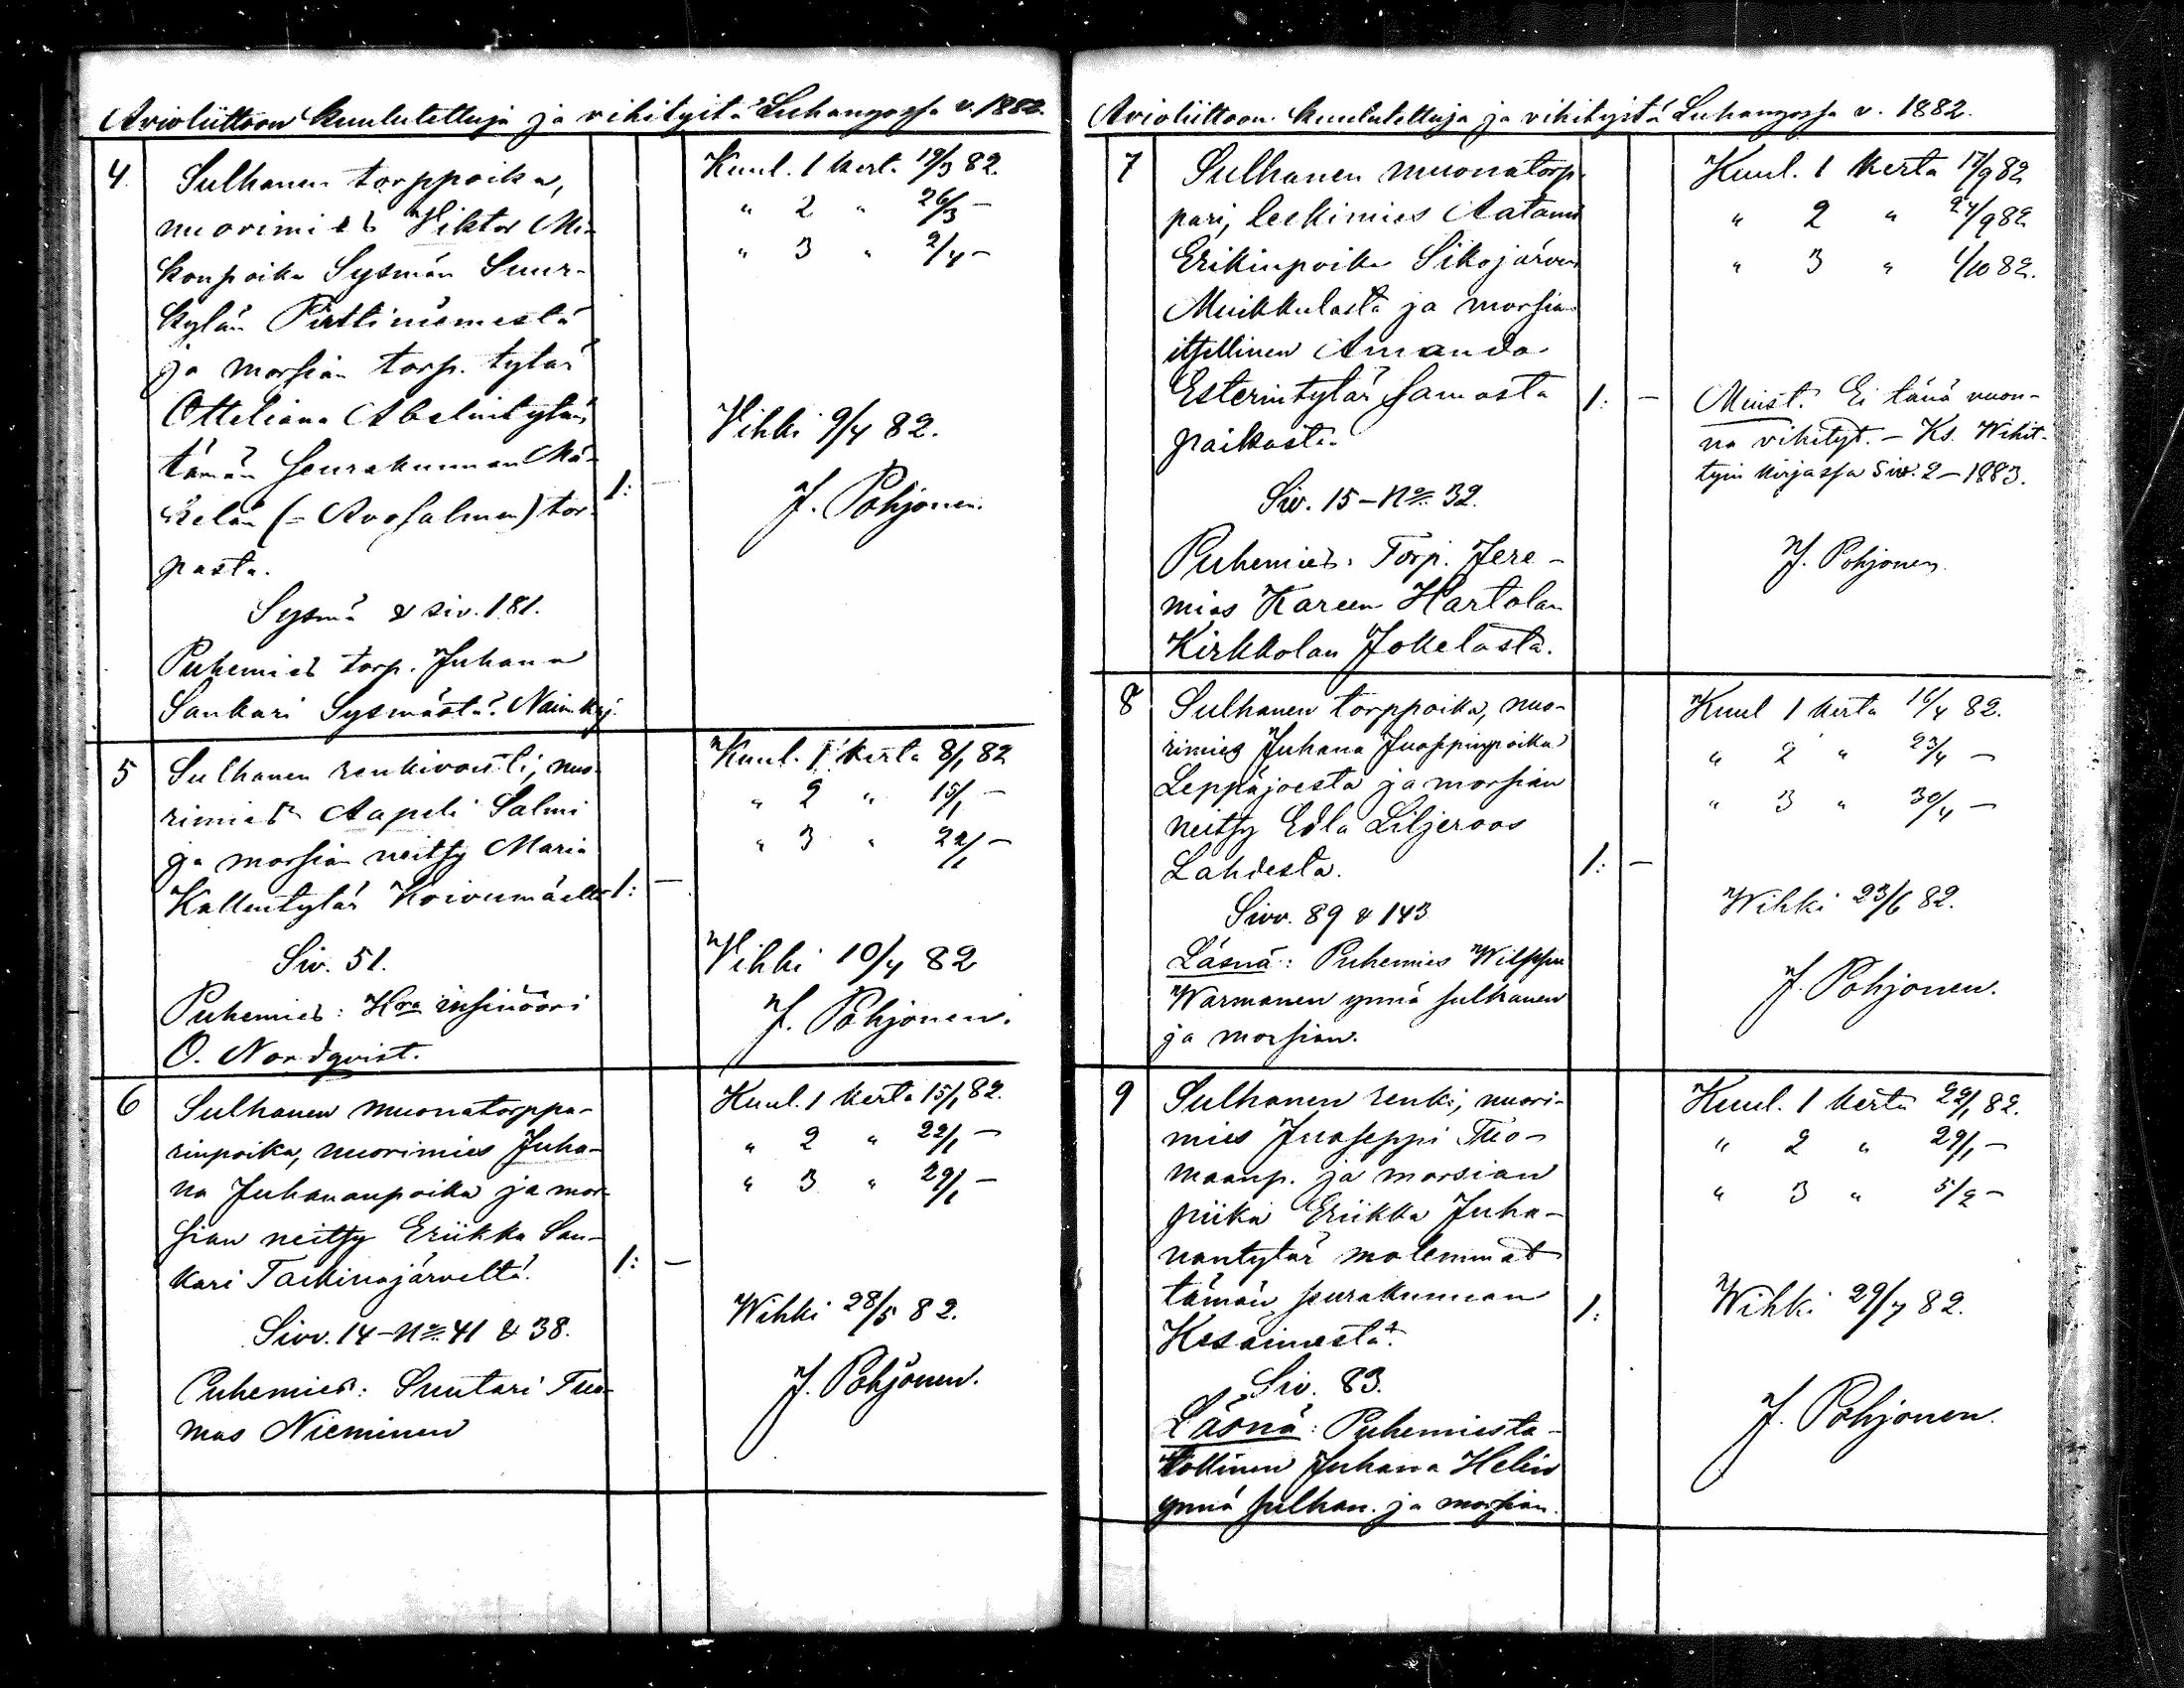 Avioliittoon kuulutettuja ja vihityitä Luhangossa v. 1882.
4. Sulhanen torppoika,
nuorimies Viktor Mi-
konpoika Sysmän Suur-
kylän Pirttiniemestä
ja morsian torp. tytär
Otteliana Abelintytär
tämän seurakunnan Mä-
kelän (= Avosalmen) tor-
pasta.
Sysmä & siv. 181.
Puhemies torp. Juhana
Sankari Sysmästä. Naim. kirj.
1: —
Kuul. 1 kert. 19/3 82.
" 2 " 26/3 –
" 3 " 2/4 –
Vihki 9/4 82.
J. Pohjonen.
5 Sulhanen renkivouti, nuo-
rimies Aapeli Salmi
ja morsian neitsy Maria
Kallentytär Koivumäeltä
Siv. 51.
Puhemies: Hra insinööri
O. Nordqvist.
1: —
Kuul. 1 kerta 8/1 82
" 2 " 15/1 –
" 3 " 22/1 –
Vihki 10/4 82
J. Pohjonen.
6 Sulhanen muonatorppa-
rinpoika, nuorimies Juha-
na Juhananpoika ja mor-
sian neitsy Eriikka San-
kari Tarkinajärveltä.
Sivv. 14 – No 41 & 38.
Puhemies: Suutari Tuo-
mas Nieminen
1: —
Kuul. 1 kerta 15/1 82.
" 2 " 22/1 –
" 3 " 29/1 –
Wihki 28/5 82.
J. Pohjonen.
Avioliittoon kuulutettuja ja vihityistä Luhangossa v. 1882.
7 Sulhanen muonatorp-
pari, leskimies Aatami
Erikinpoika Sikojärven
Muikkulasta ja morsian
itsellinen Amanda
Esterintytär samasta
paikasta.
Siv. 15 – No 32.
Puhemies: Torp. Jere-
mias Kareen Hartolan
Kirkkolan Jokelasta.
1: —
Kuul. 1 kerta 17/9 82
" 2 " 24/9 82
" 3 " 1/10 82.
Muist. Ei tänä vuon-
na vihityt. – Ks. Wihit-
tyin kirjassa siv. 2 – 1883.
J. Pohjonen.
8 Sulhanen torppoika, nuo-
rimies Juhana Juoseppinpoika
Leppäjoesta ja morsian
neitsy Edla Liljeroos
Lahdesta.
Sivv. 89 & 143
Läsnä: Puhemies Wilppu
Warmanen ynnä sulhanen
ja morsian.
1: —
Kuul 1 kerta 16/4 82.
" 2 " 23/4 –
" 3 " 30/4 –
Wihki 23/6 82.
J. Pohjonen.
9 Sulhanen renki, nuori-
mies Juoseppi Tuo-
maanp. ja morsian
piika Eriikka Juha-
nantytär molemmat
tämän seurakunnan
Siv. 83.
Läsnä: Puhemiesta-
Juhana Helin
ynnä sulhan. ja morsian.
1:
Kuul. 1 kerta 22/1 82.
" 2 " 29/1 –
" 3 " 5/2 –
Wihki 29/7 82.
J. Pohjonen.